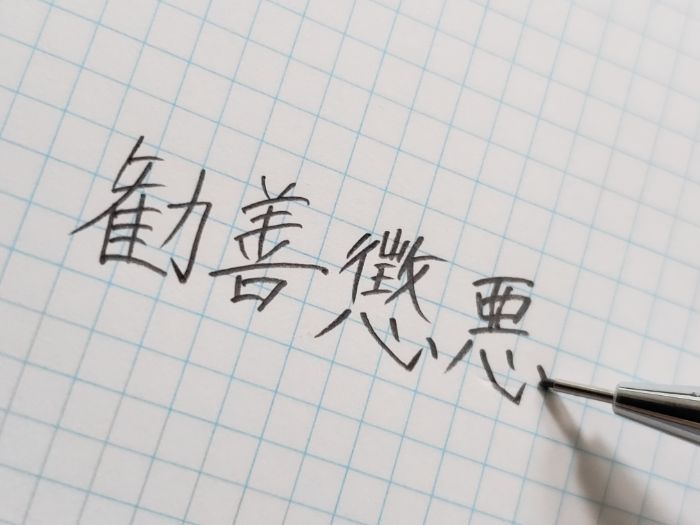 勧善懲悪